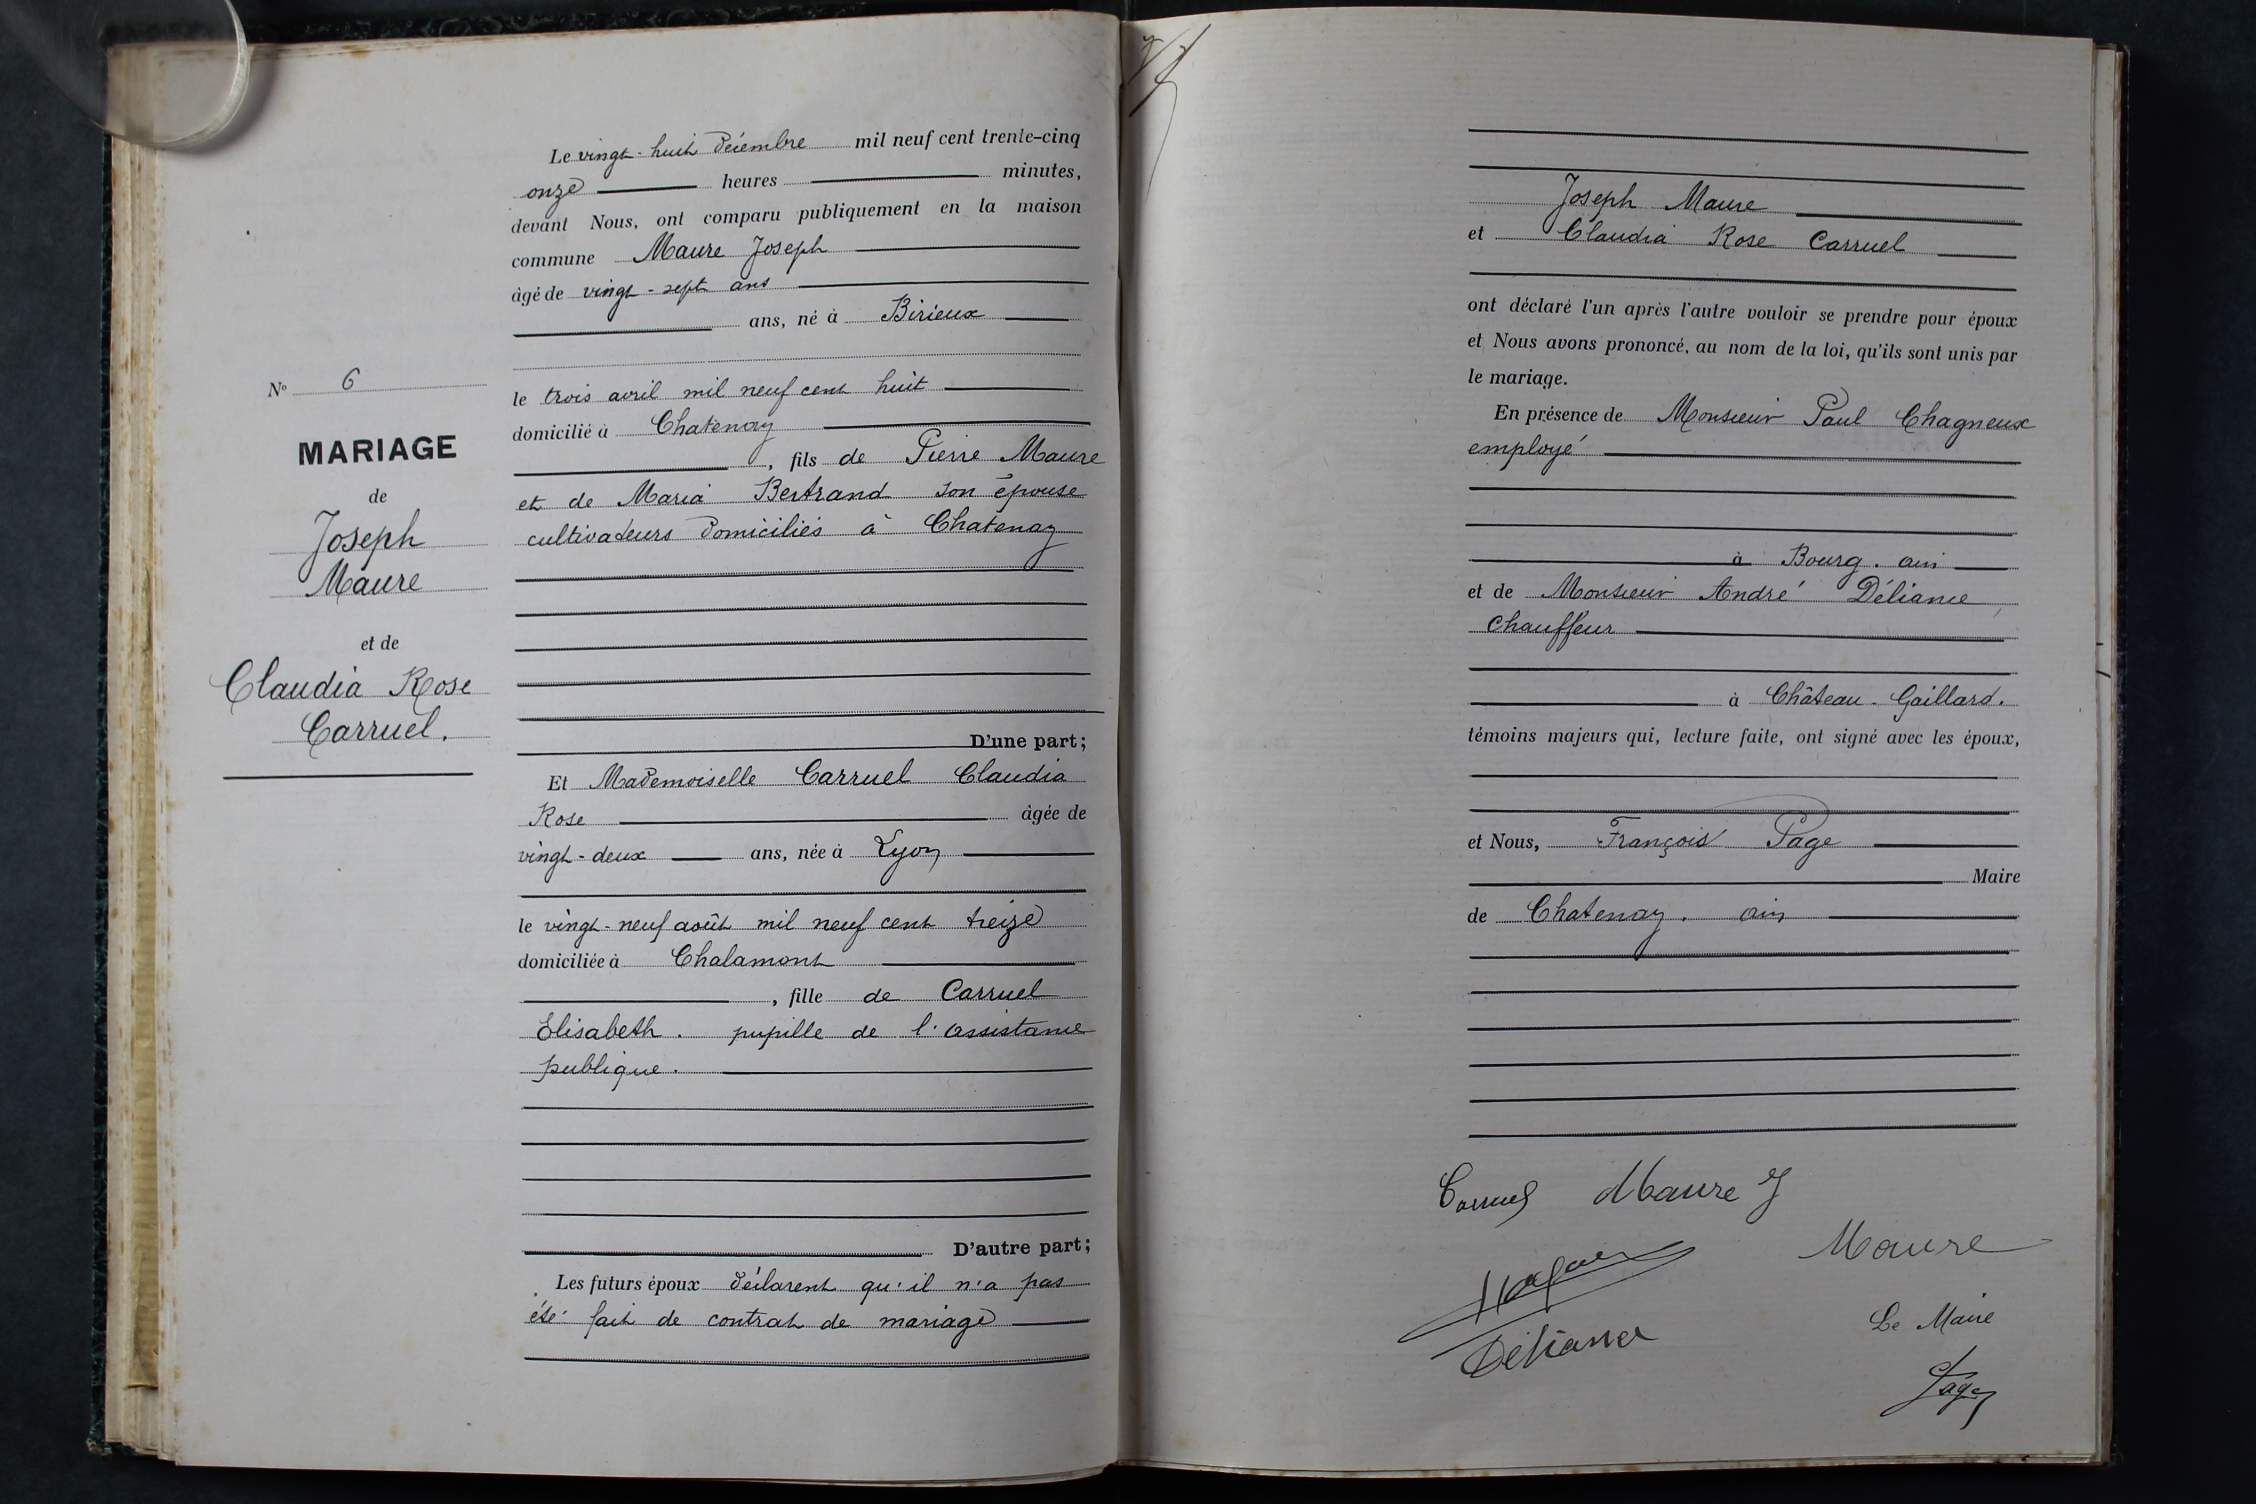 N° 6
MARIAGE
de
Joseph
Maure
et de
Claudia Rose
Carruel.
Le vingt-huit décembre mil neuf cent trente-cinq
onze heures minutes,
devant Nous, ont comparu publiquement en la maison
commune Maure Joseph
âgé de vingt-sept ans
ans, né à Birieux
le trois avril mil neuf cent huit
domicilié à Chatenay
, fils de Pierre Maure
et de Maria Bertrand son épouse
cultivateurs domiciliés à Chatenay
D'une part;
Et Mademoiselle Carruel Claudia
Rose âgée de
vingt-deux ans, née à Lyon
le vingt-neuf août mil neuf cent treize
domiciliée à Chalamont
, fille de Carruel
Elisabeth. pupille de l'assistance
publique.
D'autre part;
Les futurs époux déclarent qu'il n'a pas
été fait de contrat de mariage
Joseph Maure
et Claudia Rose Carruel
ont déclaré l'un après l'autre vouloir se prendre pour époux
et Nous avons prononcé, au nom de la loi, qu'ils sont unis par
le mariage.
En présence de Monsieur Paul Chagneux
employé
à Bourg. ain
et de Monsieur André Déliance,
chauffeur
à Château-Gaillard.
témoins majeurs qui, lecture faite, ont signé avec les époux,
et Nous, François Page
Maire
de Chatenay. ain
Carruel Maure J
Maure
Déliance
Le Maire
Page